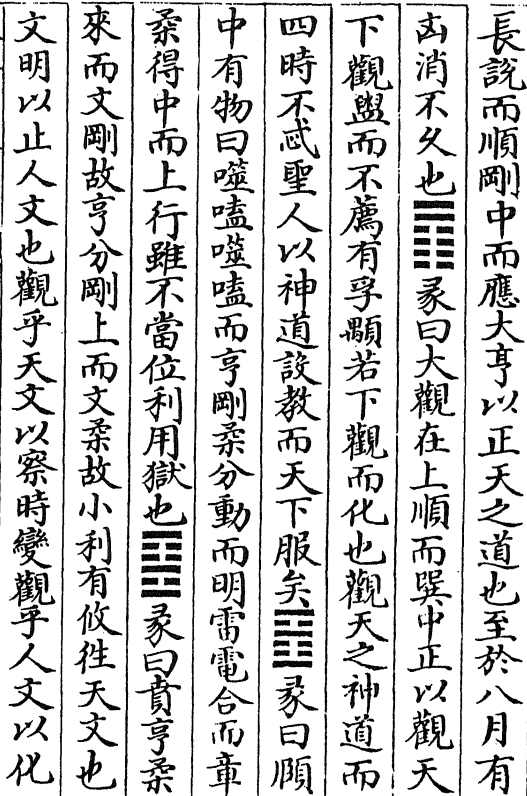 長說而順剛中而應大亨以正天之道也至於八月有
凶消不久也䷓彖曰大觀在上順而巽中正以觀天
下觀盥而不薦有孚顒若下觀而化也觀天之神道而
四時不忒聖人以神道設教而天下服矣䷔彖曰頤
中有物曰噬嗑噬嗑而亨剛柔分動而明雷電合而章
柔得中而上行雖不當位利用獄也䷕彖曰賁亨柔
來而文剛故亨分剛上而文柔故小利有攸往天文也
文明以止人文也觀乎天文以察時變觀乎人文以化